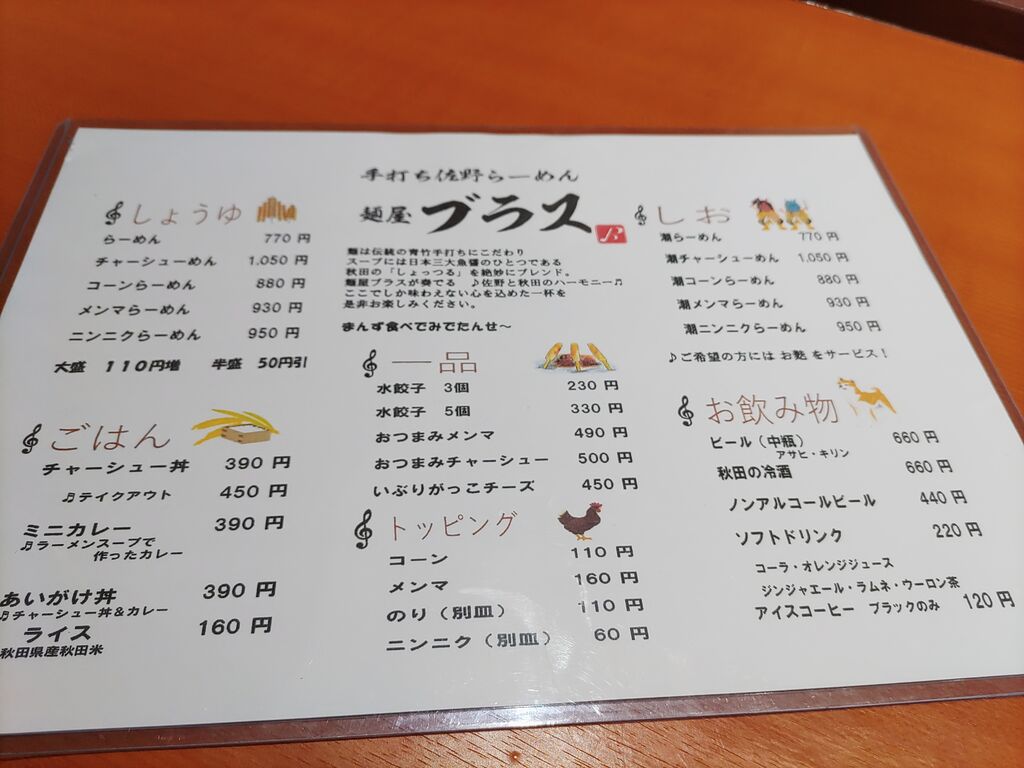 手打ち佐野らーめん
麺屋 ブラス
麺は伝統の青竹手打ちにこだわり
スープには日本三大魚醤のひとつである
秋田の「しょっつる」を絶妙にブレンド。
麺屋ブラスが奏でる ♪佐野と秋田のハーモニー♬
ここでしか味わえない心を込めた一杯を
是非お楽しみください。
まんず食べてみでたんせ～
しょうゆ
らーめん 770 円
チャーシューめん 1,050 円
コーンらーめん 880 円
メンマらーめん 930 円
ニンニクらーめん 950 円
大盛 110円増 半盛 50円引
しお
潮らーめん 770 円
潮チャーシューめん 1,050 円
潮コーンらーめん 880 円
潮メンマらーめん 930 円
潮ニンニクらーめん 950 円
♪ご希望の方には お麩 をサービス！
ごはん
チャーシュー丼 390 円
♬テイクアウト 450 円
ミニカレー 390 円
♬ラーメンスープで
作ったカレー
あいがけ丼 390 円
♬チャーシュー丼＆カレー
ライス 160 円
秋田県産秋田米
一品
水餃子 3個 230 円
水餃子 5個 330 円
おつまみメンマ 490 円
おつまみチャーシュー 500 円
いぶりがっこチーズ 450 円
トッピング
コーン 110 円
メンマ 160 円
のり（別皿） 110 円
ニンニク（別皿） 60 円
お飲み物
ビール（中瓶） 660 円
アサヒ・キリン
秋田の冷酒 660 円
ノンアルコールビール 440 円
ソフトドリンク 220 円
コーラ・オレンジジュース
ジンジャエール・ラムネ・ウーロン茶
アイスコーヒー ブラックのみ 120 円